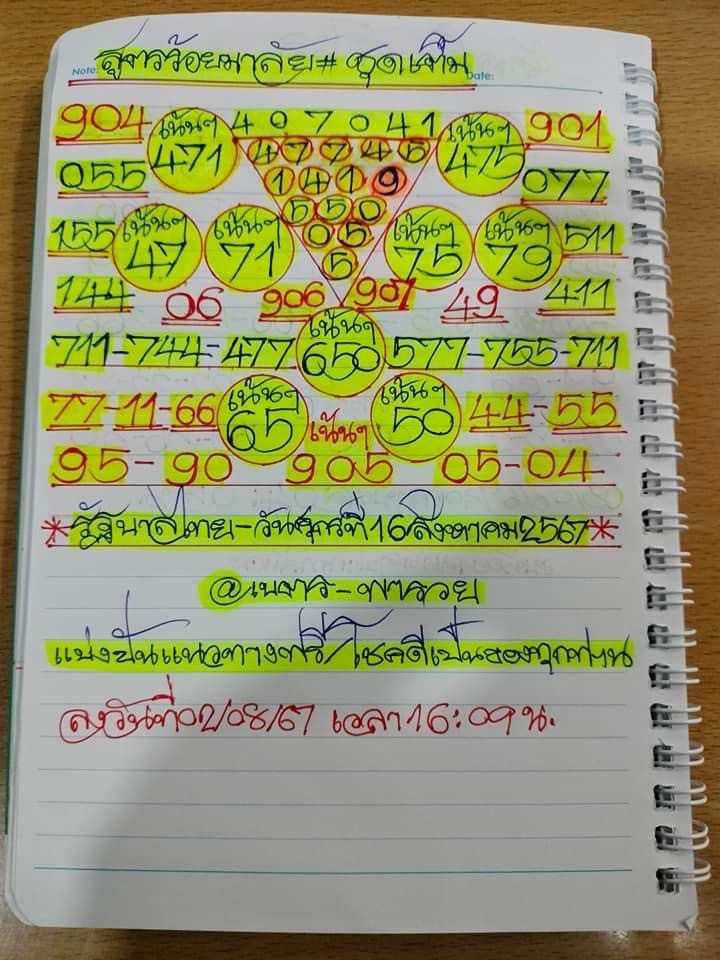 Note:
Date:
สูตรร้อยมาลัย# ชุดเต็ม
904 เน้นๆ 4 0 7 0 4 1 เน้นๆ 901
471 4 7 7 4 5 475
055 1 4 1 9 077
5 5 0
155 เน้นๆ เน้นๆ 0 5 เน้นๆ เน้นๆ 511
47 71 5 75 79
144 06 906 907 49 411
เน้นๆ
711-744-477 650 577-755-711
77-11-66 เน้นๆ เน้นๆ 44-55
65 เน้นๆ 50
95-90 905 05-04
*รัฐบาลไทย-วันศุกร์ที่16สิงหาคม2567*
แบ่งปันแนวทางฟรี/โชคดีเป็นของทุกท่าน
ลงวันที่02/08/67 เวลา16:09น.